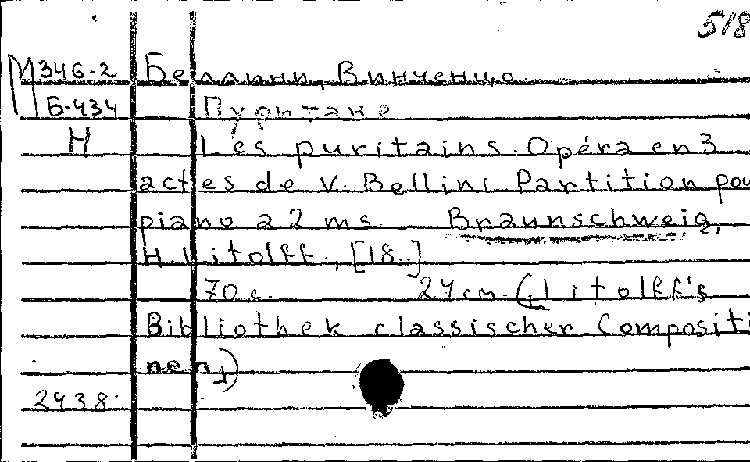 518
М346-2 Беллини, Винченцо
Б-434 Пуритане
Н Les puritains. Opéra en 3
actes de V. Bellini Partition pou
piano a 2 ms. Braunschweig,
H. Litolff, [18..]
70 с. 24 cm. (Litolff's
Bibliothek classischer Compositi
nen)
2938.